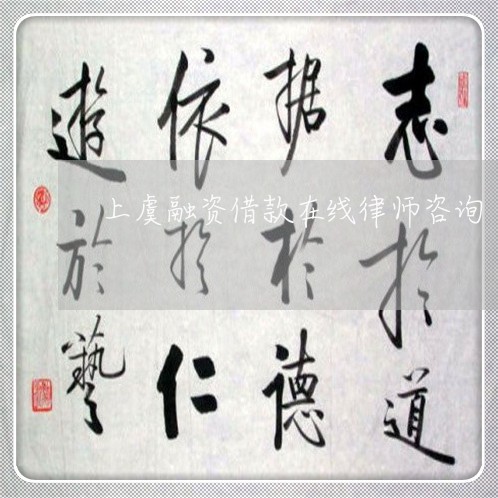 志於道
据於德
依於仁
遊於藝
上虞融资借款在线律师咨询